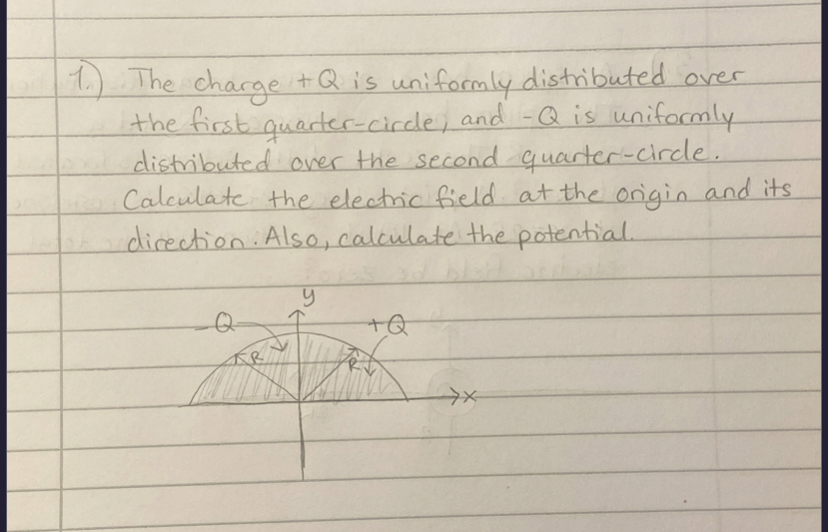 1.) The charge +Q is uniformly distributed over
the first quarter-circle, and -Q is uniformly
distributed over the second quarter-circle.
Calculate the electric field at the origin and its
direction. Also, calculate the potential.
y
-Q +Q
R R
x